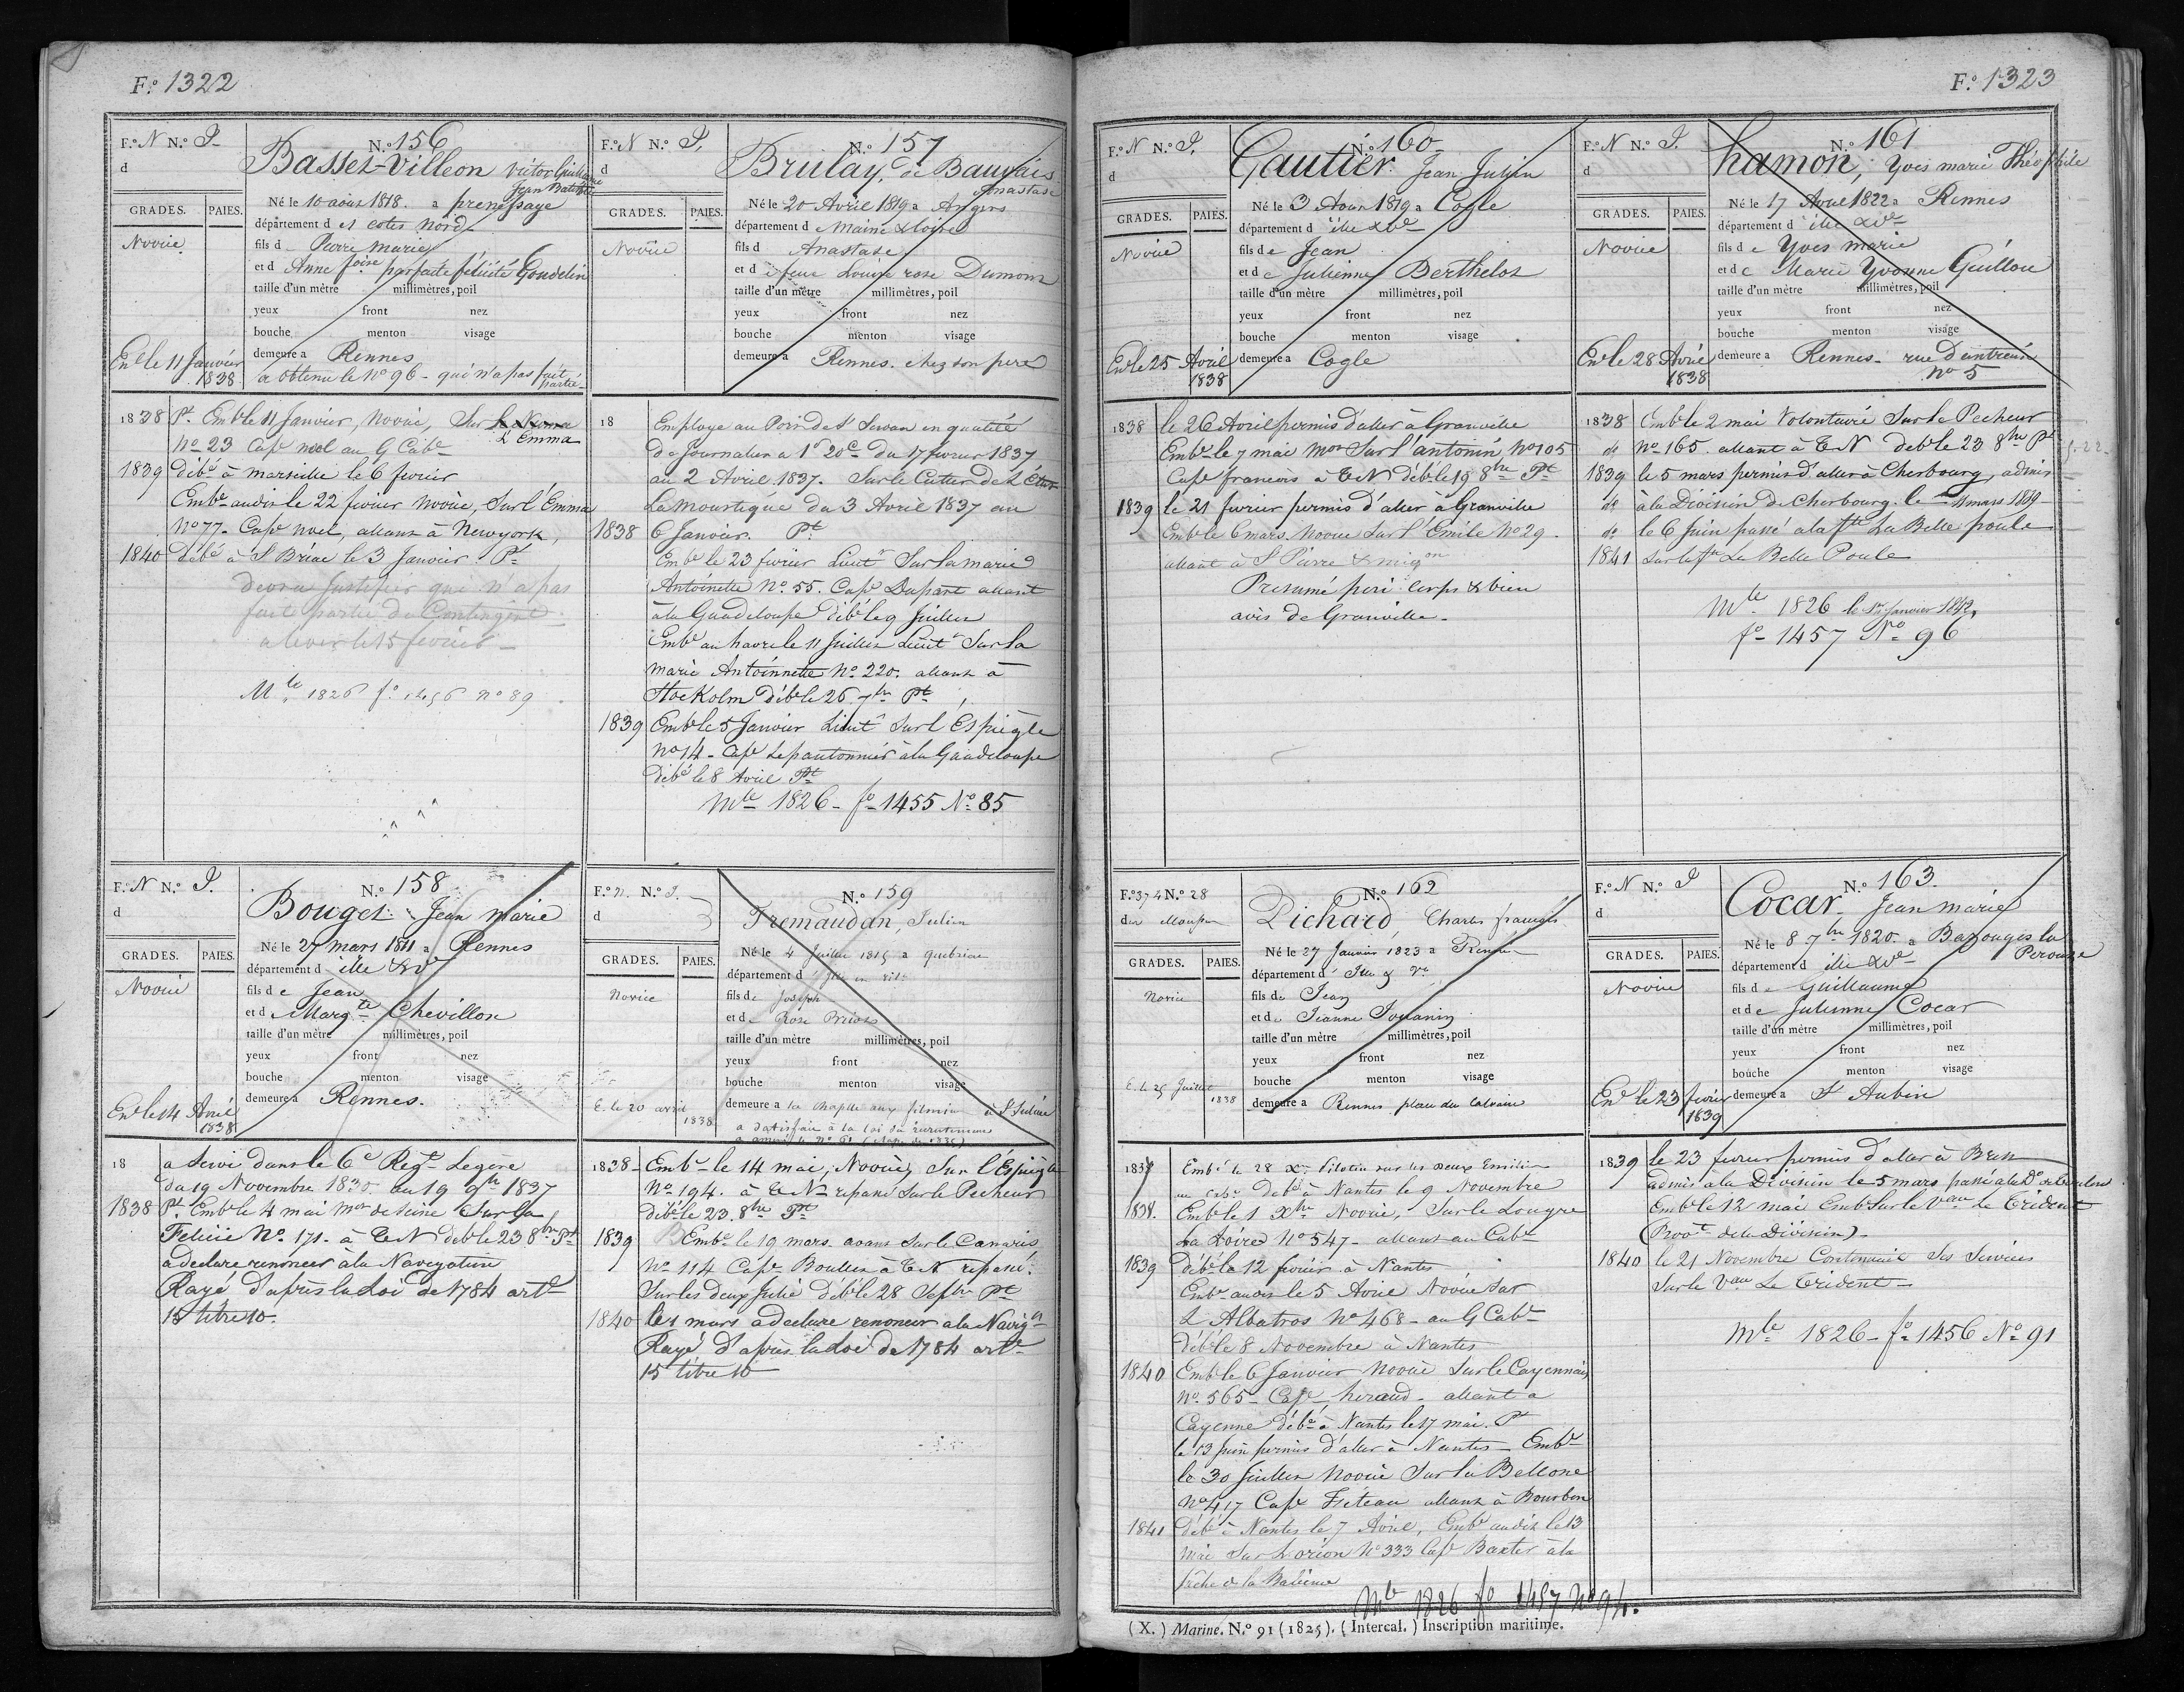 F.º 1322
F.º N N.º S.
d
GRADES. PAIES.
Novice
En le 11 Janvier
1838
N.º 156
Basset-Villéon Victor Guillaume
Jean Batiste
Né le 10 août 1818. a prenessaye
département d es cotes nord
fils d Pierre marie
et d Anne foise parfaite félicité Goudelin
taille d'un mètre millimètres, poil
yeux front nez
bouche menton visage
demeure a Rennes
a obtenu le nº 96 - qui n'a pas fait
partie
1838 Pt. Embé le 11 Janvier, novice, Sur
L'Emma
Nº 23 Cape noel au G Cabe
1839 débé à marseille le 6 fevrier
Embé audit le 22 fevrier novice, Sur l'Emma
Nº 77 - Cape noel, allant à Newyork,
1840 débé à St Briac le 3 Janvier Pt
devra Justifier qui n'a pas
fait partie du Contingent
a lever le 15 fevrier
Mle 1826 fº 1456 nº 89
F.º N N.º S.
d
GRADES. PAIES.
Novice
N.º 157
Brulay, de Bauvais
Anastase
Né le 20 Avril 1819 a Angers
département d e Maine & Loire
fils d Anastase
et d e feue Louise rose Dumont
taille d'un mètre millimètres, poil
yeux front nez
bouche menton visage
demeure a Rennes. chez son pere
18 Employé au Port de St Servan en qualité
de Journalier a 1f 20c du 17 fevrier 1837
au 2 Avril 1837. Sur le Cutter de L'Etat
La moustique du 3 Avril 1837 au
1838 6 Janvier. Pt
Embé le 23 fevrier Lieutt Sur la marie
Antoinette Nº 55. Cape Dupart allant
à la Guadeloupe débé le 9 Juillet
Embé au havre le 11 Juillet Lieutt Sur la
marie Antoinnette Nº 220. allant à
Stockolm débé le 26 7bre Pt
1839 Embé le 5 Janvier Lieutt Sur l'Espiègle
nº 14 - Cape Lepautonnier à la Guadeloupe
débé le 8 Avril Pt
Mle 1826 - fº 1455 Nº 85
F.º N N.º S.
d
GRADES. PAIES.
Novice
En le 14 Avril
1838
N.º 158
Bouget Jean marie
Né le 27 mars 1811 a Rennes
département d ille & Ve
fils d e Jean
et d e Margte Chevillon
taille d'un mètre millimètres, poil
yeux front nez
bouche menton visage
demeure a Rennes.
18 a servi dans le 6e Regt Legère
du 19 Novembre 1830 au 19 9bre 1837
1838 Pt. Embé le 4 mai mot de Seine Sur la
Felicie Nº 171 - à TN débé le 23 8bre Pt
a declare renoncer à la Navigation
Rayé d'après la Loi de 1784 arte
15 titre 10.
F.º N. N.º S.
d
GRADES. PAIES.
Novice
E. le 20 avril
1838
N.º 159
Tremaudan, Julien
Né le 4 Juillet 1815 a quebriac
département d'
fils de Joseph
et de Rose
taille d'un mètre millimètres, poil
yeux front nez
bouche menton visage
demeure a la Chapelle aux filmeins à St Julien
a satisfait à la loi du recrutement
1838 - Embé le 14 mai, Novice, Sur l'Espiègle
Nº 194. à TN repassé Sur le Pecheur
débé le 23. 8bre Pt
1839 Embé le 19 mars. avant Sur le Canaris
Nº 114 Cape Boullen à TN repassé
Sur les deux Julie débé le 28 Sepbre Pt
1840 le 1 mars a declare renoncer a la Navigon
Rayé d'après la Loi de 1784 arte
15 titre 10
F.º 1323
F.º N N.º S.
d
GRADES. PAIES.
Novice
En le 25 Avril
1838
N.º 160
Gautier Jean Julien
Né le 3 Aout 1819 a Cogle
département d ille & Ve
fils d e Jean
et d e Julienne Berthelot
taille d'un mètre millimètres, poil
yeux front nez
bouche menton visage
demeure a Cogle
1838 le 26 Avril permis d'aller à Granville
Embé le 7 mai mot Sur l'antonin nº 105
Cape francois à TN débé le 19 8bre Pt
1839 le 21 fevrier permis d'aller à Granville
Embé le 6 mars. Novice Sur l'Emile Nº 29.
allant à St Pierre & miqon
Presumé peri corps & bien
avis de Granville -
F.º N N.º S.
d
GRADES. PAIES.
Novice
En le 28 Avril
1838
N.º 161
hamon, Yves marie Théophile
Né le 17 Avril 1822 a Rennes
département d ille & Ve
fils d e Yves marie
et d e Marie Yvonne Guillou
taille d'un mètre millimètres, poil
yeux front nez
bouche menton visage
demeure a Rennes - rue d'antrain
Nº 5
1838 Embé le 2 mai Volontaire Sur le Pecheur
dº nº 165. allant à TN debé le 23 8bre Pt
1839 le 5 mars permis d'aller à Cherbourg, admis
dº à la Division de Cherbourg. le 11 mars 1839 -
dº le 6 Juin passé a la fte La Belle poule
1841 Sur la fte La Belle Poule
Mle 1826 le 1er Janvier 1842,
fº 1457 Nº 96
F.º 374 N.º 28
des Mousses
GRADES. PAIES.
Novice
E. le 25 Juillet
1838
N.º 162
Pichard, Charles françois
Né le 27 Janvier 1823 a Rennes
département d' Ille & Ve
fils de Jean
et de Jeanne Jouanin
taille d'un mètre millimètres, poil
yeux front nez
bouche menton visage
demeure a Rennes place du Calvaire
1837 Embé le 28 Xe. Pilotin sur les deux Emilie
au Cabe Debé à Nantes le 9 Novembre
1838. Embé le 1 Xbre Novice, Sur le Lougre
La Loire Nº 547 - allant au Cabe
1839 débé le 12 fevrier à Nantes
Embé audit le 5 Avril Novice Sur
L'Albatros nº 468 - au G Cabe
débé le 8 Novembre à Nantes
1840 Embé le 6 Janvier novice Sur le Cayennais
nº 565 - Cape heraud - allant a
Cayenne débé à Nantes le 17 mai. Pt
le 13 juin permis d'aller à Nantes - Embé
le 30 Juillet novice Sur la Bellone
nº 417 Cape Fiteau allant à Bourbon
1841 débé à Nantes le 7 Avril, Embé audit le 13
mai Sur L'orion Nº 333 Cape Baxter à la
pêche de la Baleine
Mle 1826 fº 1457 nº 94.
F.º N N.º S
d
GRADES. PAIES.
Novice
En le 23 fevrier
1839
N.º 163.
Cocar Jean marie
Né le 8 7bre 1820. a Bazouges la
Perouze
département d ille & Ve
fils d e Guillaume
et d e Julienne Cocar
taille d'un mètre millimètres, poil
yeux front nez
bouche menton visage
demeure a St Aubin
1839 le 23 fevrier permis d'aller à Brest
admis à la Division le 5 mars passé à la Don de Toulon
Embé le 12 mai Embé Sur le Vau Le Trident
(Provt de la Division)
1840 le 21 Novembre Continuait Ses Services
Sur le Vau Le Trident
Mle 1826 - fº 1456 Nº 91
(X.) Marine. N.º 91 (1825). (Intercal.) Inscription maritime.